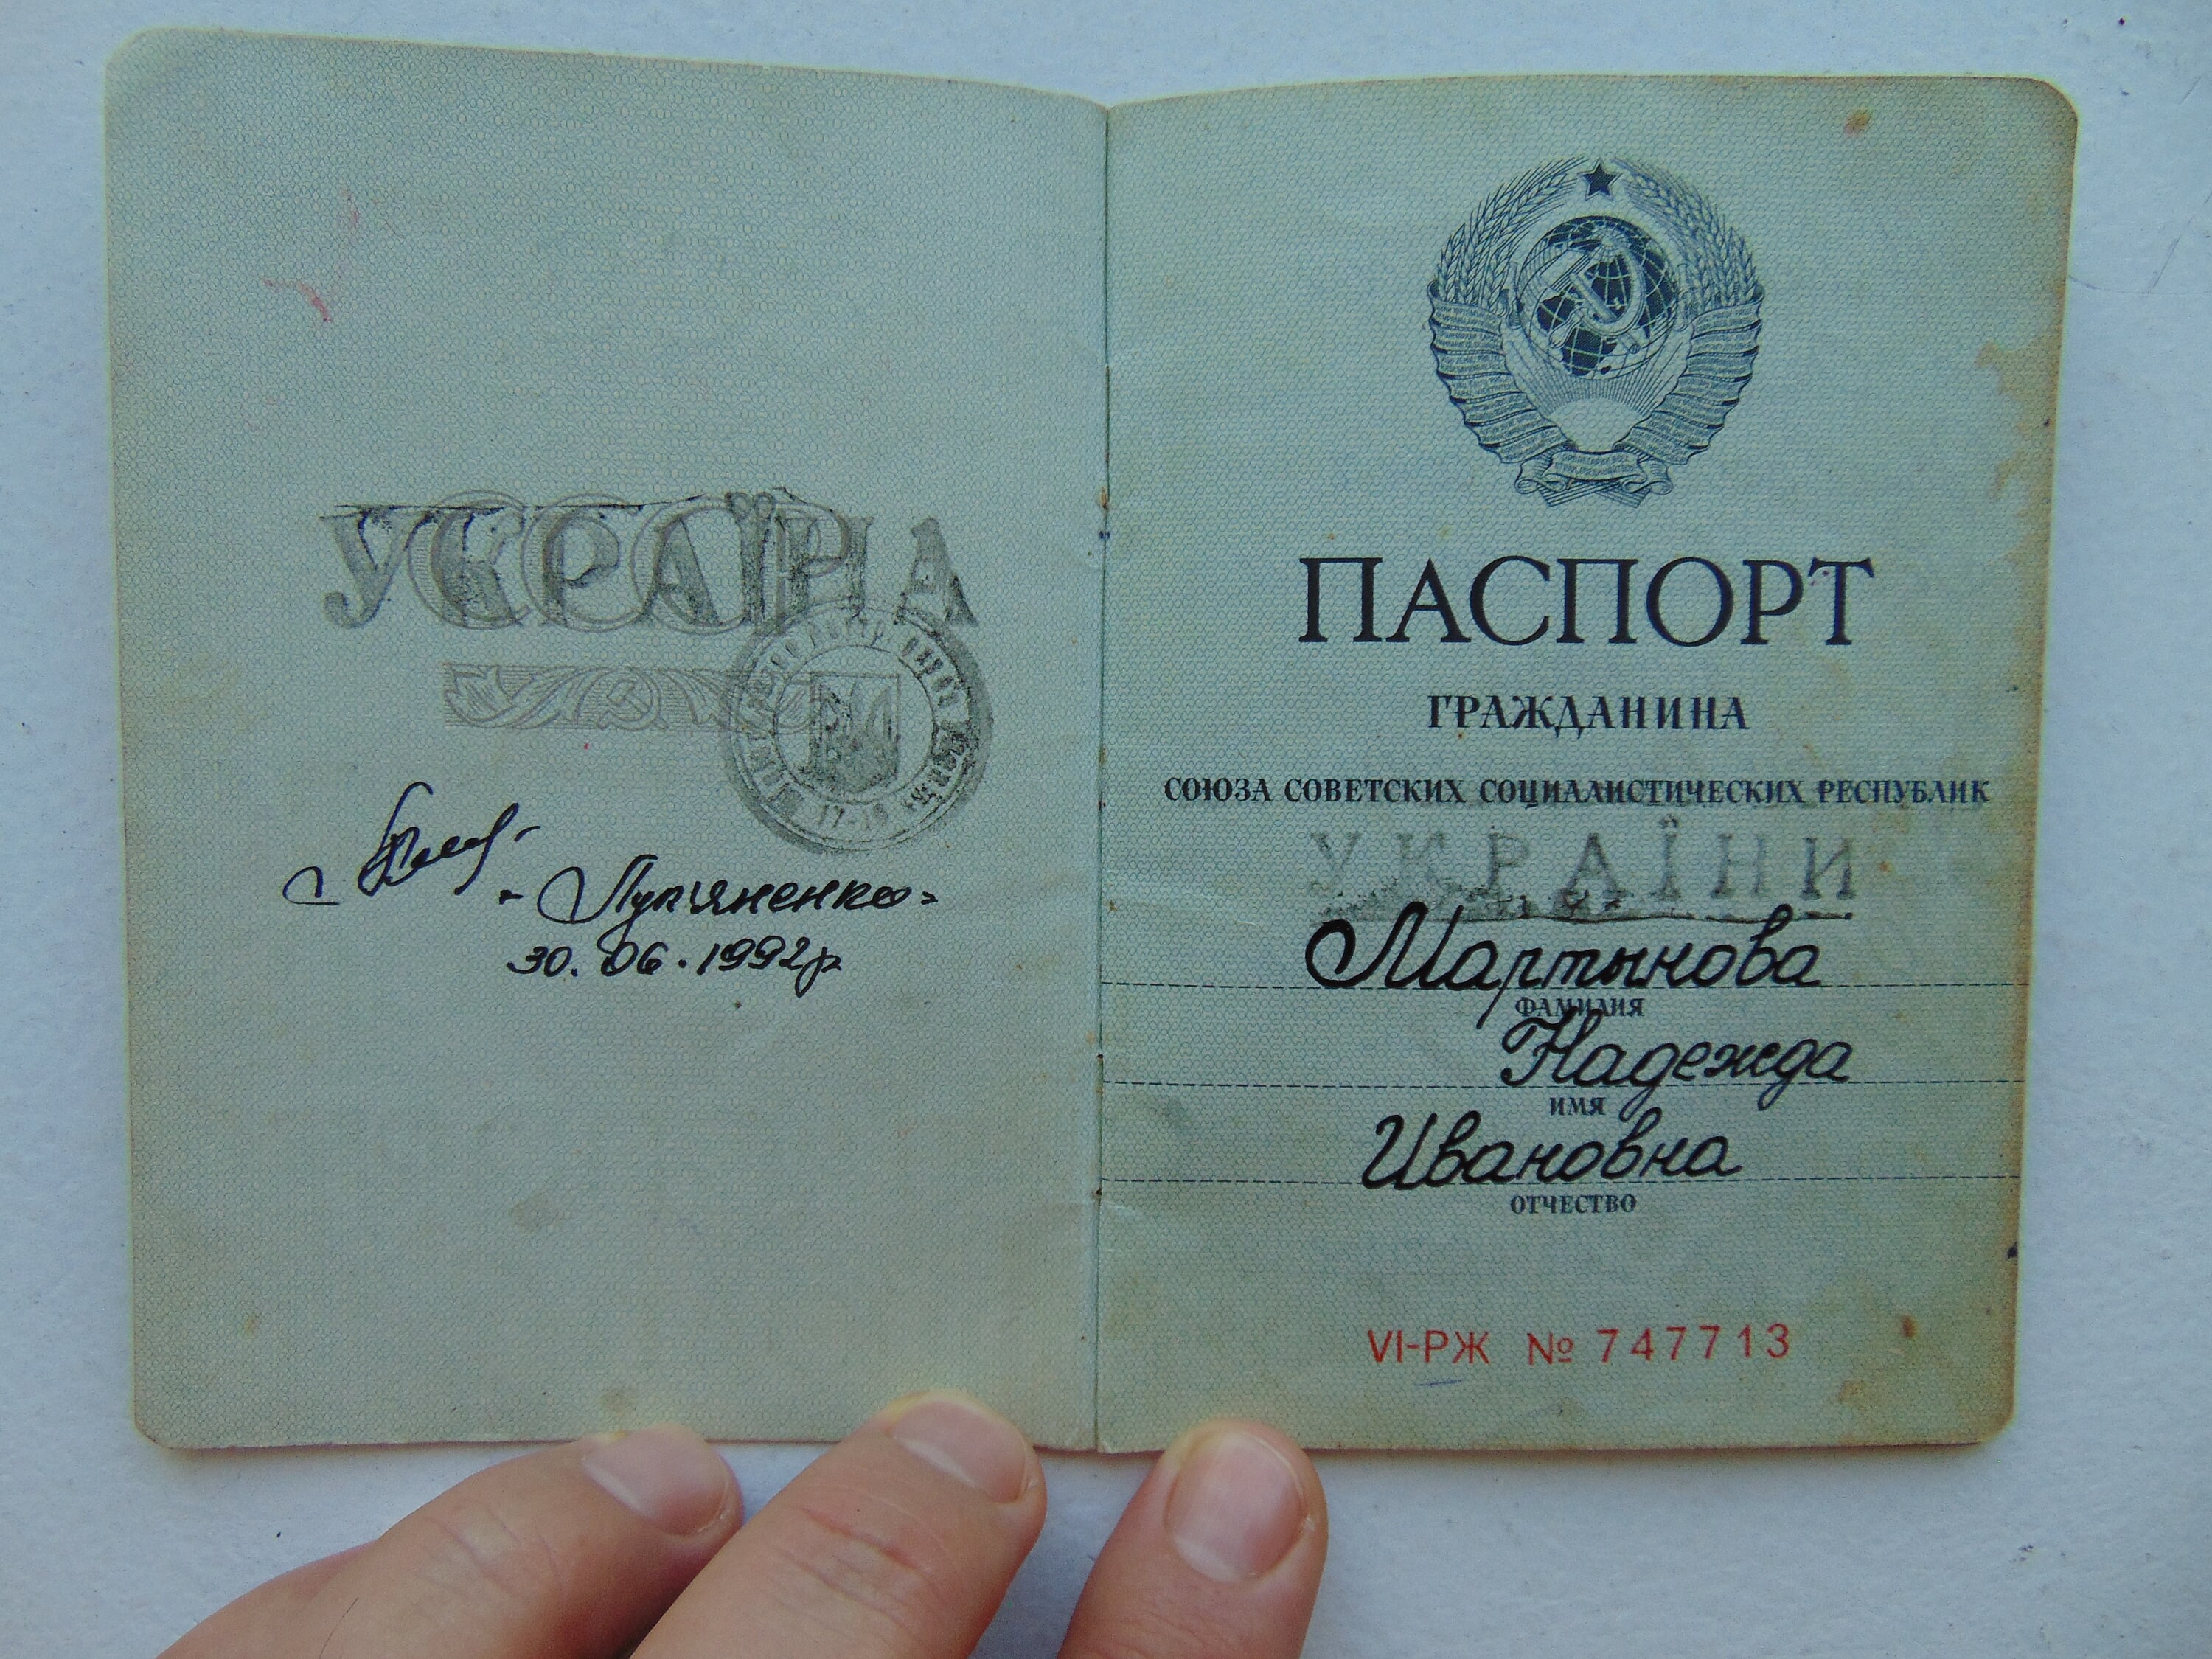 УКРАЇНА
СССР
Лук'яненко
30.06.1992р
ПАСПОРТ
ГРАЖДАНИНА
СОЮЗА СОВЕТСКИХ СОЦИАЛИСТИЧЕСКИХ РЕСПУБЛИК
УКРАЇНИ
Мартынова
ФАМИЛИЯ
Надежда
ИМЯ
Ивановна
ОТЧЕСТВО
VI-РЖ № 747713